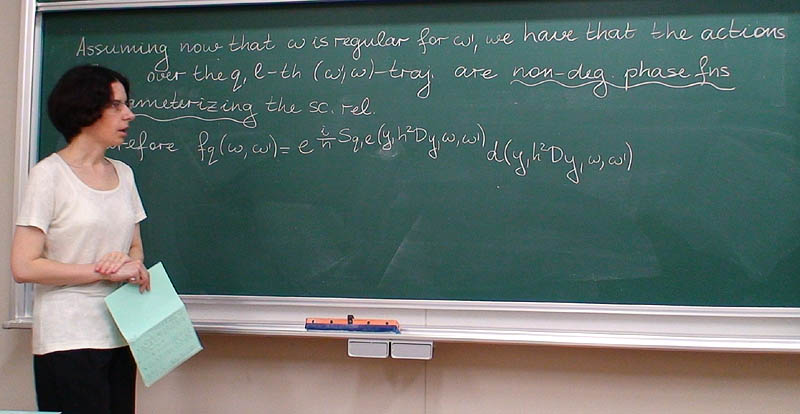 Assuming now that ω is regular for ω', we have that the actions
over the q, l-th (ω', ω)-traj. are non-deg. phase fns
ameterizing the sc. rel.
refore f_q(ω, ω') = e^{i/h S_{q,e}(y, h²Dy, ω, ω')} d(y, h²Dy, ω, ω')